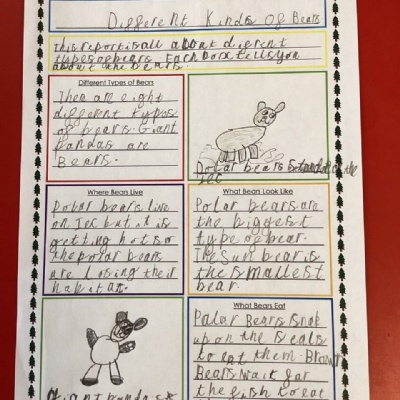 Different Kinds of Bears
this report is all about diferent
types of bears. Each box tells you
about the bears.
Different Types of Bears
There are eight
different types
of bears. Giant
Pandas are
Bears.
Polar bears stand on the
Ice
Where Bears Live
Polar bears live
on Ice but it is
getting hot so
the polar bears
are losing their
habitat.
What Bears Look Like
Polar bears are
the biggest
type of bear.
The Sun bear is
the smallest
bear.
Giant pandas
What Bears Eat
Polar Bears
up on the seals
to eat them. Brown
Bears wait for
the fish to eat